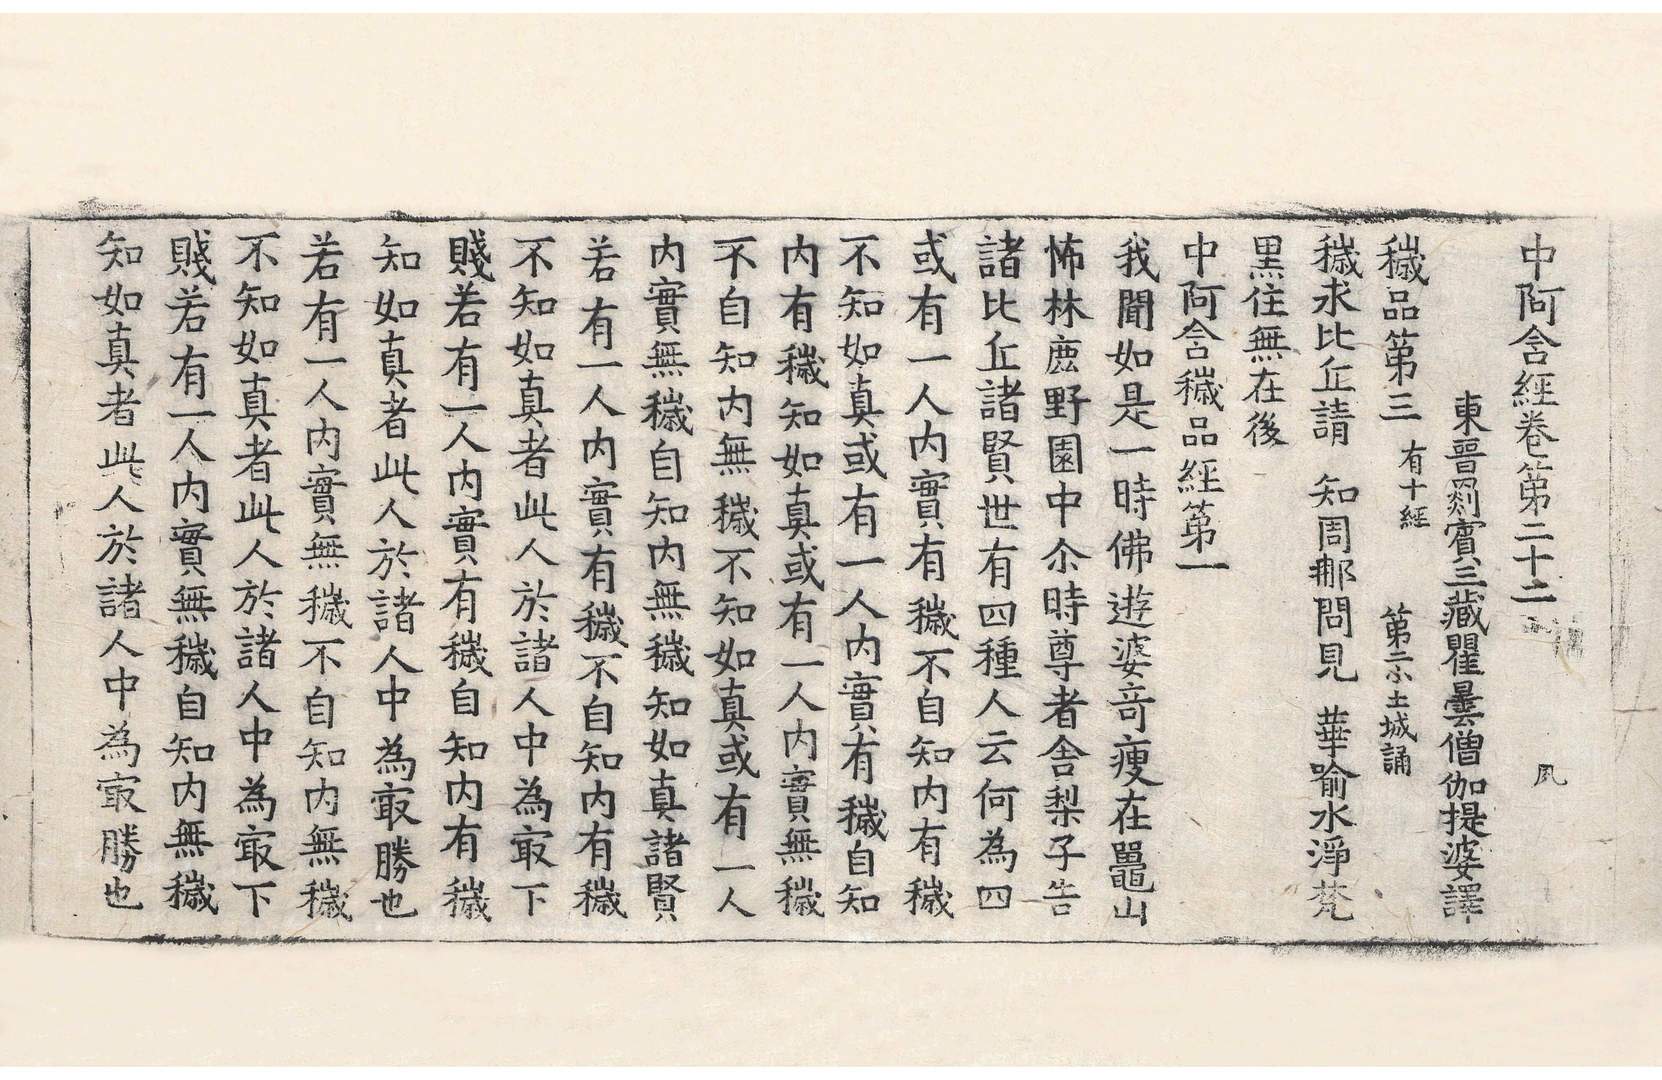 中阿含經卷第二十二 夙
東晉罽賓三藏瞿曇僧伽提婆譯
穢品第三 有十經 第二小土城誦
穢求比丘請 知周那問見 華喻水淨梵
黑住無在後
中阿含穢品經第一
我聞如是一時佛遊婆奇瘦在鼉山
怖林鹿野園中尒時尊者舍梨子告
諸比丘諸賢世有四種人云何為四
或有一人內實有穢不自知內有穢
不知如真或有一人內實有穢自知
內有穢知如真或有一人內實無穢
不自知內無穢不知如真或有一人
內實無穢自知內無穢知如真諸賢
若有一人內實有穢不自知內有穢
不知如真者此人於諸人中為㝡下
賤若有一人內實有穢自知內有穢
知如真者此人於諸人中為㝡勝也
若有一人內實無穢不自知內無穢
不知如真者此人於諸人中為㝡下
賤若有一人內實無穢自知內無穢
知如真者此人於諸人中為㝡勝也